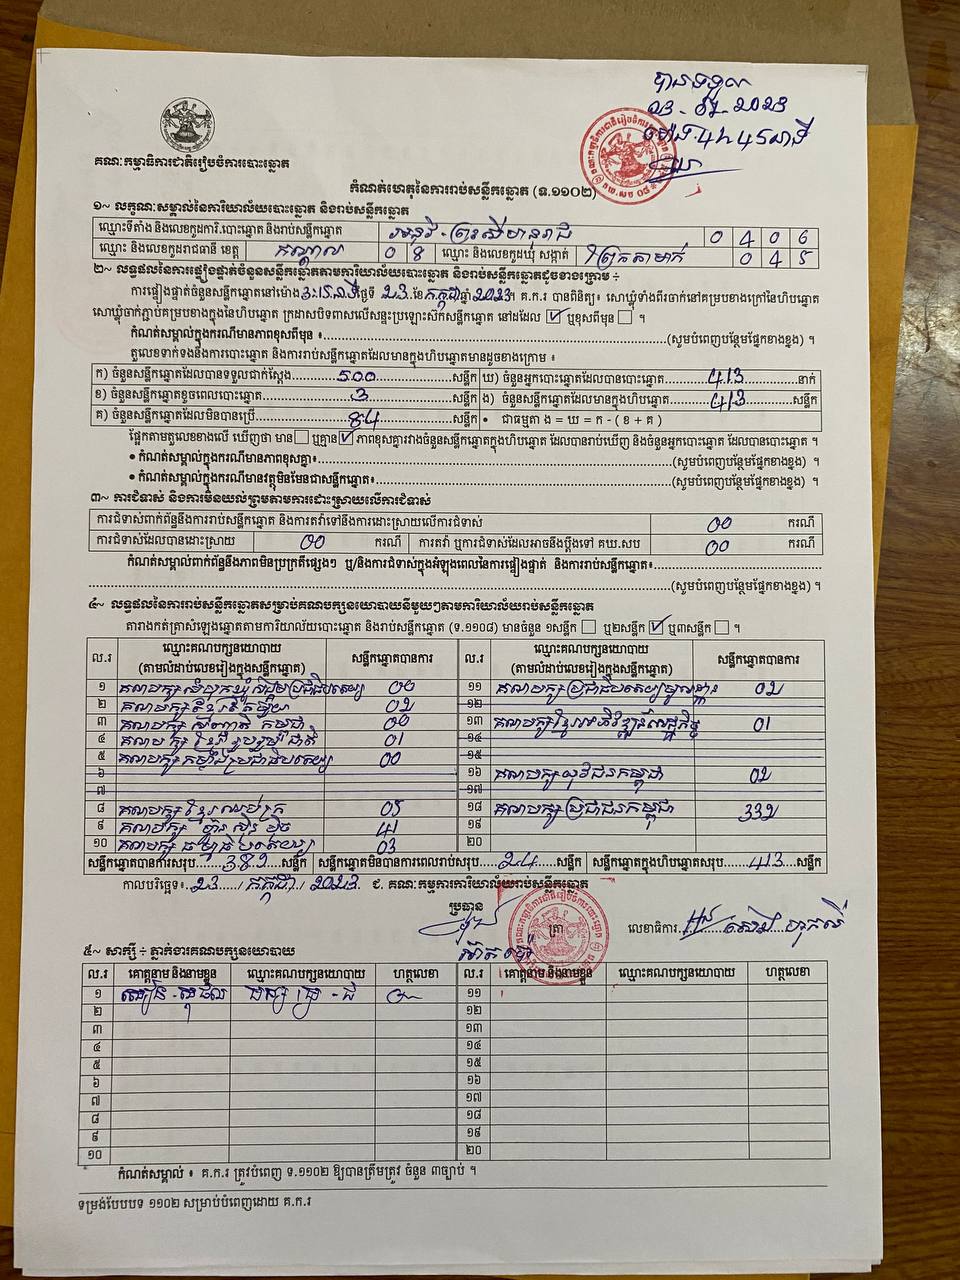 បានទទួល
គណៈកម្មាធិការជាតិរៀបចំការបោះឆ្នោត
កំណត់ហេតុនៃការរាប់សន្លឹកឆ្នោត (ទ.១១០២)
១~ លក្ខណៈសម្គាល់នៃការិយាល័យបោះឆ្នោត និងរាប់សន្លឹកឆ្នោត
ឈ្មោះទីតាំង និងលេខកូដការិ.បោះឆ្នោត និងរាប់សន្លឹកឆ្នោត 0 4 0 6
ឈ្មោះ និងលេខកូដរាជធានី ខេត្ត កណ្តាល 0 8 ឈ្មោះ និងលេខកូដឃុំ សង្កាត់ ព្រែកតាមាក់ 0 4 5
២~ លទ្ធផលនៃការផ្ទៀងផ្ទាត់ចំនួនសន្លឹកឆ្នោតតាមការិយាល័យបោះឆ្នោត និងរាប់សន្លឹកឆ្នោតដូចខាងក្រោម ÷
ការផ្ទៀងផ្ទាត់ចំនួនសន្លឹកឆ្នោតនៅម៉ោង 3:15 នាទី ថ្ងៃទី 23 ខែ កក្កដា ឆ្នាំ 2023 ។ គ.ក.រ បានពិនិត្យ៖ សោឃ្លុំទាំងពីរចាក់នៅគម្របខាងក្រៅនៃហិបឆ្នោត
សោឃ្លុំចាក់ភ្ជាប់គម្របខាងក្នុងនៃហិបឆ្នោត ក្រដាសបិទពាសលើសន្ទះប្រឡោះសៀតសន្លឹកឆ្នោត នៅដដែល ☑ ឬខុសពីមុន ☐ ។
កំណត់សម្គាល់ក្នុងករណីមានភាពខុសពីមុន ៖ (សូមបំពេញបន្ថែមផ្នែកខាងខ្នង) ។
តួលេខទាក់ទងនឹងការបោះឆ្នោត និងការរាប់សន្លឹកឆ្នោតដែលមានក្នុងហិបឆ្នោតមានដូចខាងក្រោម ៖
ក) ចំនួនសន្លឹកឆ្នោតដែលបានទទួលជាក់ស្តែង 500 សន្លឹក ឃ) ចំនួនអ្នកបោះឆ្នោតដែលបានបោះឆ្នោត 413 នាក់
ខ) ចំនួនសន្លឹកឆ្នោតខូចពេលបោះឆ្នោត 3 សន្លឹក ង) ចំនួនសន្លឹកឆ្នោតដែលមានក្នុងហិបឆ្នោត 413 សន្លឹក
គ) ចំនួនសន្លឹកឆ្នោតដែលមិនបានប្រើ 84 សន្លឹក • ជាធម្មតា ង = ឃ = ក - ( ខ + គ )
ផ្អែកតាមតួលេខខាងលើ ឃើញថា មាន ☐ ឬគ្មាន ☑ ភាពខុសគ្នារវាងចំនួនសន្លឹកឆ្នោតក្នុងហិបឆ្នោត ដែលបានរាប់ឃើញ និងចំនួនអ្នកបោះឆ្នោត ដែលបានបោះឆ្នោត ។
• កំណត់សម្គាល់ក្នុងករណីមានភាពខុសគ្នា៖ (សូមបំពេញបន្ថែមផ្នែកខាងខ្នង) ។
• កំណត់សម្គាល់ក្នុងករណីមានវត្ថុមិនមែនជាសន្លឹកឆ្នោត៖ (សូមបំពេញបន្ថែមផ្នែកខាងខ្នង) ។
៣~ ការជំទាស់ និងការមិនយល់ព្រមតាមការដោះស្រាយលើការជំទាស់
ការជំទាស់ពាក់ព័ន្ធនឹងការរាប់សន្លឹកឆ្នោត និងការតវ៉ាទៅនឹងការដោះស្រាយលើការជំទាស់ 00 ករណី
ការជំទាស់ដែលបានដោះស្រាយ 00 ករណី ការតវ៉ា ឬការជំទាស់ដែលអាចនឹងប្តឹងទៅ គឃ.សប 00 ករណី
កំណត់សម្គាល់ពាក់ព័ន្ធនឹងភាពមិនប្រក្រតីផ្សេងៗ ឬ/និងការជំទាស់ក្នុងអំឡុងពេលនៃការផ្ទៀងផ្ទាត់ និងការរាប់សន្លឹកឆ្នោត៖
(សូមបំពេញបន្ថែមផ្នែកខាងខ្នង) ។
៤~ លទ្ធផលនៃការរាប់សន្លឹកឆ្នោតសម្រាប់គណបក្សនយោបាយនីមួយៗតាមការិយាល័យរាប់សន្លឹកឆ្នោត
តារាងកត់ត្រាសំឡេងឆ្នោតតាមការិយាល័យបោះឆ្នោត និងរាប់សន្លឹកឆ្នោត (ទ.១១០៨) មានចំនួន ១សន្លឹក ☐ ឬ២សន្លឹក ☑ ឬ៣សន្លឹក ☐ ។
ល.រ ឈ្មោះគណបក្សនយោបាយ (តាមលំដាប់លេខរៀងក្នុងសន្លឹកឆ្នោត) សន្លឹកឆ្នោតបានការ ល.រ ឈ្មោះគណបក្សនយោបាយ (តាមលំដាប់លេខរៀងក្នុងសន្លឹកឆ្នោត) សន្លឹកឆ្នោតបានការ
១ គណបក្សសំបុកឃ្មុំសង្គមប្រជាធិបតេយ្យ 00 ១១ គណបក្សប្រជាធិបតេយ្យមូលដ្ឋាន 02
២ 02 ១២
៣ 00 ១៣ គណបក្សខ្មែរអភិវឌ្ឍន៍សេដ្ឋកិច្ច 01
៤ គណបក្សខ្មែររួបរួមជាតិ 01 ១៤
៥ គណបក្សកម្លាំងប្រជាធិបតេយ្យ 00 ១៥
៦ ១៦ គណបក្សយុវជនកម្ពុជា 02
៧ ១៧
៨ គណបក្សខ្មែរឈប់ក្រ 05 ១៨ គណបក្សប្រជាជនកម្ពុជា 332
៩ 41 ១៩
១០ គណបក្សធម្មាធិបតេយ្យ 03 ២០
សន្លឹកឆ្នោតបានការសរុប 389 សន្លឹក សន្លឹកឆ្នោតមិនបានការពេលរាប់សរុប 24 សន្លឹក សន្លឹកឆ្នោតក្នុងហិបឆ្នោតសរុប 413 សន្លឹក
កាលបរិច្ឆេទ៖ 23 / កក្កដា / 2023 ជ. គណៈកម្មការការិយាល័យរាប់សន្លឹកឆ្នោត
ប្រធាន ត្រា លេខាធិការ
៥~ សាក្សី ÷ ភ្នាក់ងារគណបក្សនយោបាយ
ល.រ គោត្តនាម និងនាមខ្លួន ឈ្មោះគណបក្សនយោបាយ ហត្ថលេខា ល.រ គោត្តនាម និងនាមខ្លួន ឈ្មោះគណបក្សនយោបាយ ហត្ថលេខា
១ ១១
២ ១២
៣ ១៣
៤ ១៤
៥ ១៥
៦ ១៦
៧ ១៧
៨ ១៨
៩ ១៩
១០ ២០
កំណត់សម្គាល់ ៖ គ.ក.រ ត្រូវបំពេញ ទ.១១០២ ឱ្យបានត្រឹមត្រូវ ចំនួន ៣ច្បាប់ ។
ទម្រង់បែបបទ ១១០២ សម្រាប់បំពេញដោយ គ.ក.រ